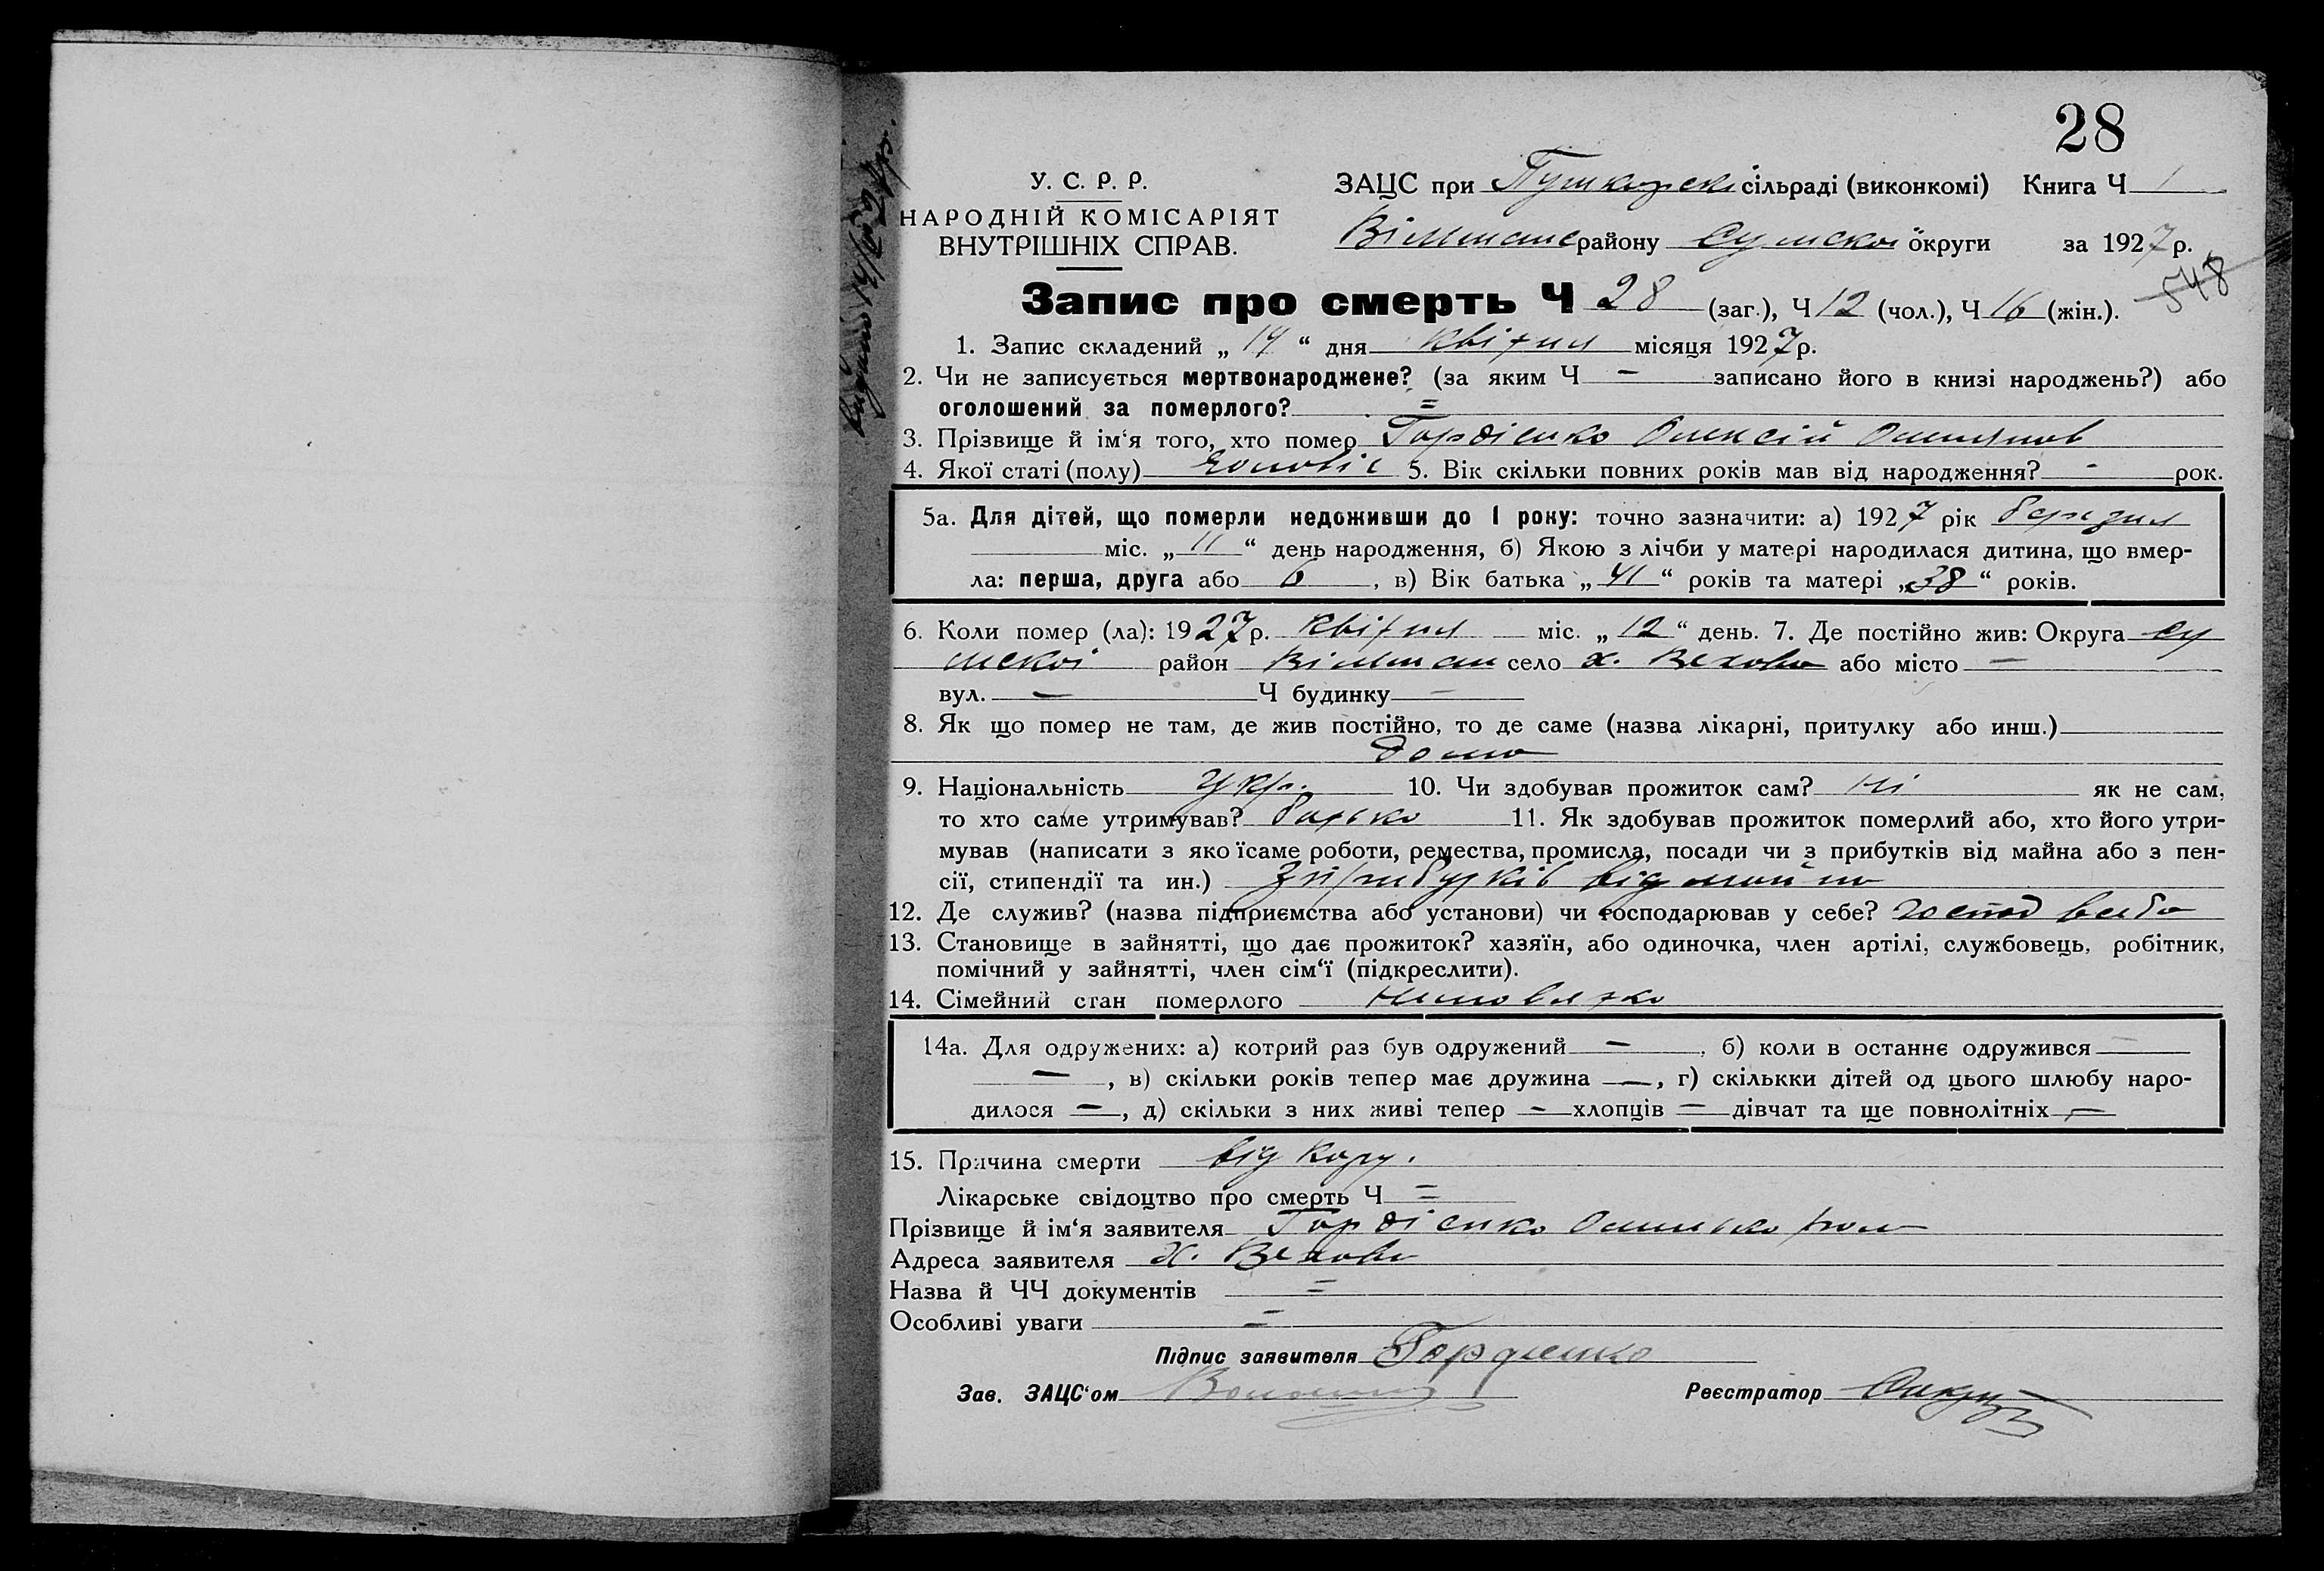 28
У. С. Р. Р.
НАРОДНІЙ КОМІСАРІЯТ
ВНУТРІШНІХ СПРАВ.
ЗАЦС при Пушкарскі сільраді (виконкомі) Книга Ч 1
району Сумскої округи за 1927 р.
548
Запис про смерть Ч 28 (заг.), Ч 12 (чол.), Ч 16 (жін.).
1. Запис складений „ 14 “ дня квітня місяця 1927 р.
2. Чи не записується мертвонароджене? (за яким Ч — записано його в книзі народжень?) або
оголошений за померлого? =
3. Прізвище й ім‘я того, хто помер Гордієнко Олексій
4. Якої статі (полу) 5. Вік скільки повних років мав від народження? - рок.
5а. Для дітей, що померли недоживши до 1 року: точно зазначити: а) 1927 рік березня
міс. „ 11 “ день народження, б) Якою з лічби у матері народилася дитина, що вмер-
ла: перша, друга або 6 , в) Вік батька „ 41 “ років та матері „ 38 “ років.
6. Коли помер (ла): 1927 р. квітня міс. „ 12 “ день. 7. Де постійно жив: Округа Су
мскої район село х. або місто —
вул. — Ч будинку —
8. Як що помер не там, де жив постійно, то де саме (назва лікарні, притулку або инш.)
дома
9. Національність Укр. 10. Чи здобував прожиток сам? ні як не сам,
то хто саме утримував? батько 11. Як здобував прожиток померлий або, хто його утри-
мував (написати з яко їсаме роботи, ремества, промисла, посади чи з прибутків від майна або з пен-
сії, стипендії та ин.) з прибутків від майна
12. Де служив? (назва підприємства або установи) чи господарював у себе? господ в себе
13. Становище в зайнятті, що дає прожиток? хазяїн, або одиночка, член артілі, службовець, робітник,
помічний у зайнятті, член сім‘ї (підкреслити).
14. Сімейний стан померлого немовлятко
14а. Для одружених: а) котрий раз був одружений — , б) коли в останнє одружився —
— , в) скільки років тепер має дружина — , г) скількки дітей од цього шлюбу наро-
дилося — , д) скільки з них живі тепер — хлопців — дівчат та ще повнолітніх —
15. Причина смерти від кору.
Лікарське свідоцтво про смерть Ч =
Прізвище й ім‘я заявителя Гордієнко
Адреса заявителя х.
Назва й ЧЧ документів =
Особливі уваги =
Підпис заявителя Гордиенко
Зав. ЗАЦС‘ом
Реєстратор